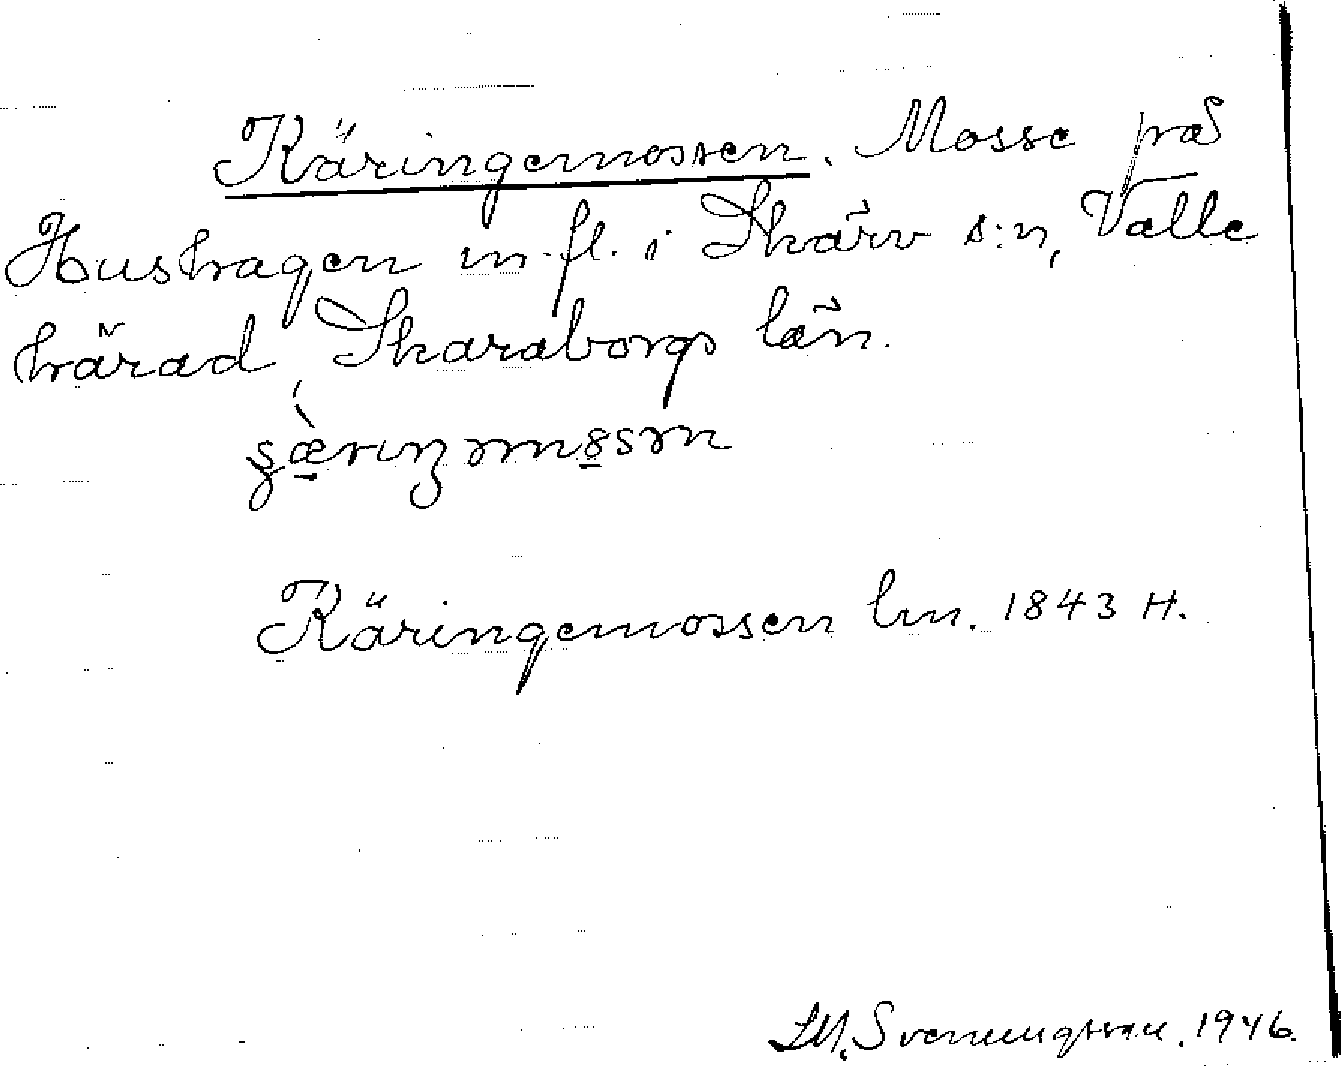 Käringemossen. Mosse på
Hushagen m.fl. i Skärv s:n, Valle
härad, Skaraborgs län.

Käringemossen lm. 1843 H.
Svenungsson. 1946.